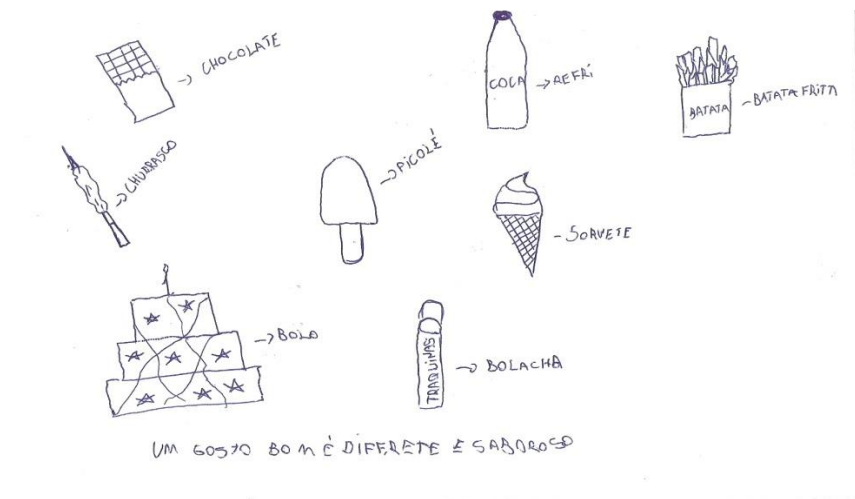 CHOCOLATE
COCA
REFRÍ
BATATA
BATATA FRITA
CHURRASCO
PICOLÉ
SORVETE
BOLO
TRAQUINAS
BOLACHA
UM GOSTO BOM É DIFERETE E SABOROSO